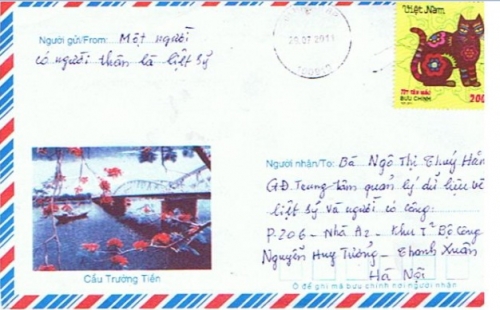 Người gửi/From: Một người
có người thân là liệt sỹ
29.07.2011
Việt Nam
TẾT TÂN MÃO
BƯU CHÍNH
200
Người nhận/To: Bà Ngô Thị Thuý Hằng
GĐ. Trung tâm quản lý dữ liệu về
liệt sỹ và người có công:
P.206 - Nhà A2 - Khu TT Bộ Công
Nguyễn Huy Tưởng - Thanh Xuân
Hà Nội
Cầu Trường Tiền
Ô để ghi mã bưu chính nơi người nhận